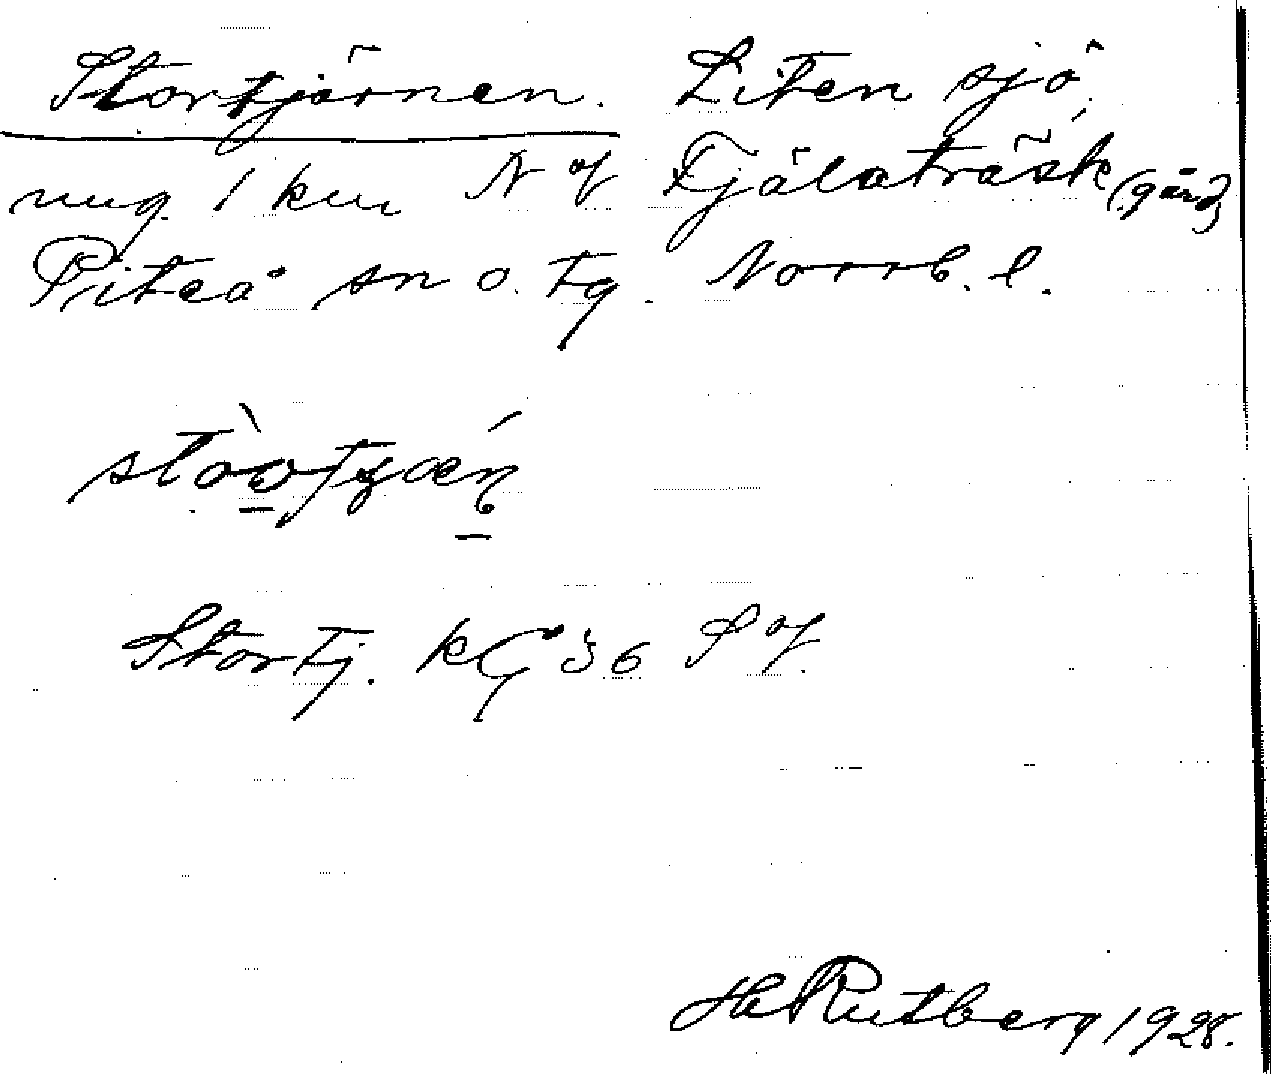 Stortjärnen. Liten sjö,
ung. 1 km N of Fjälaträsk (gård)
Piteå sn o. tg. Norrb. l.
Stortj. kG 36 S of
H Rutberg 1928.